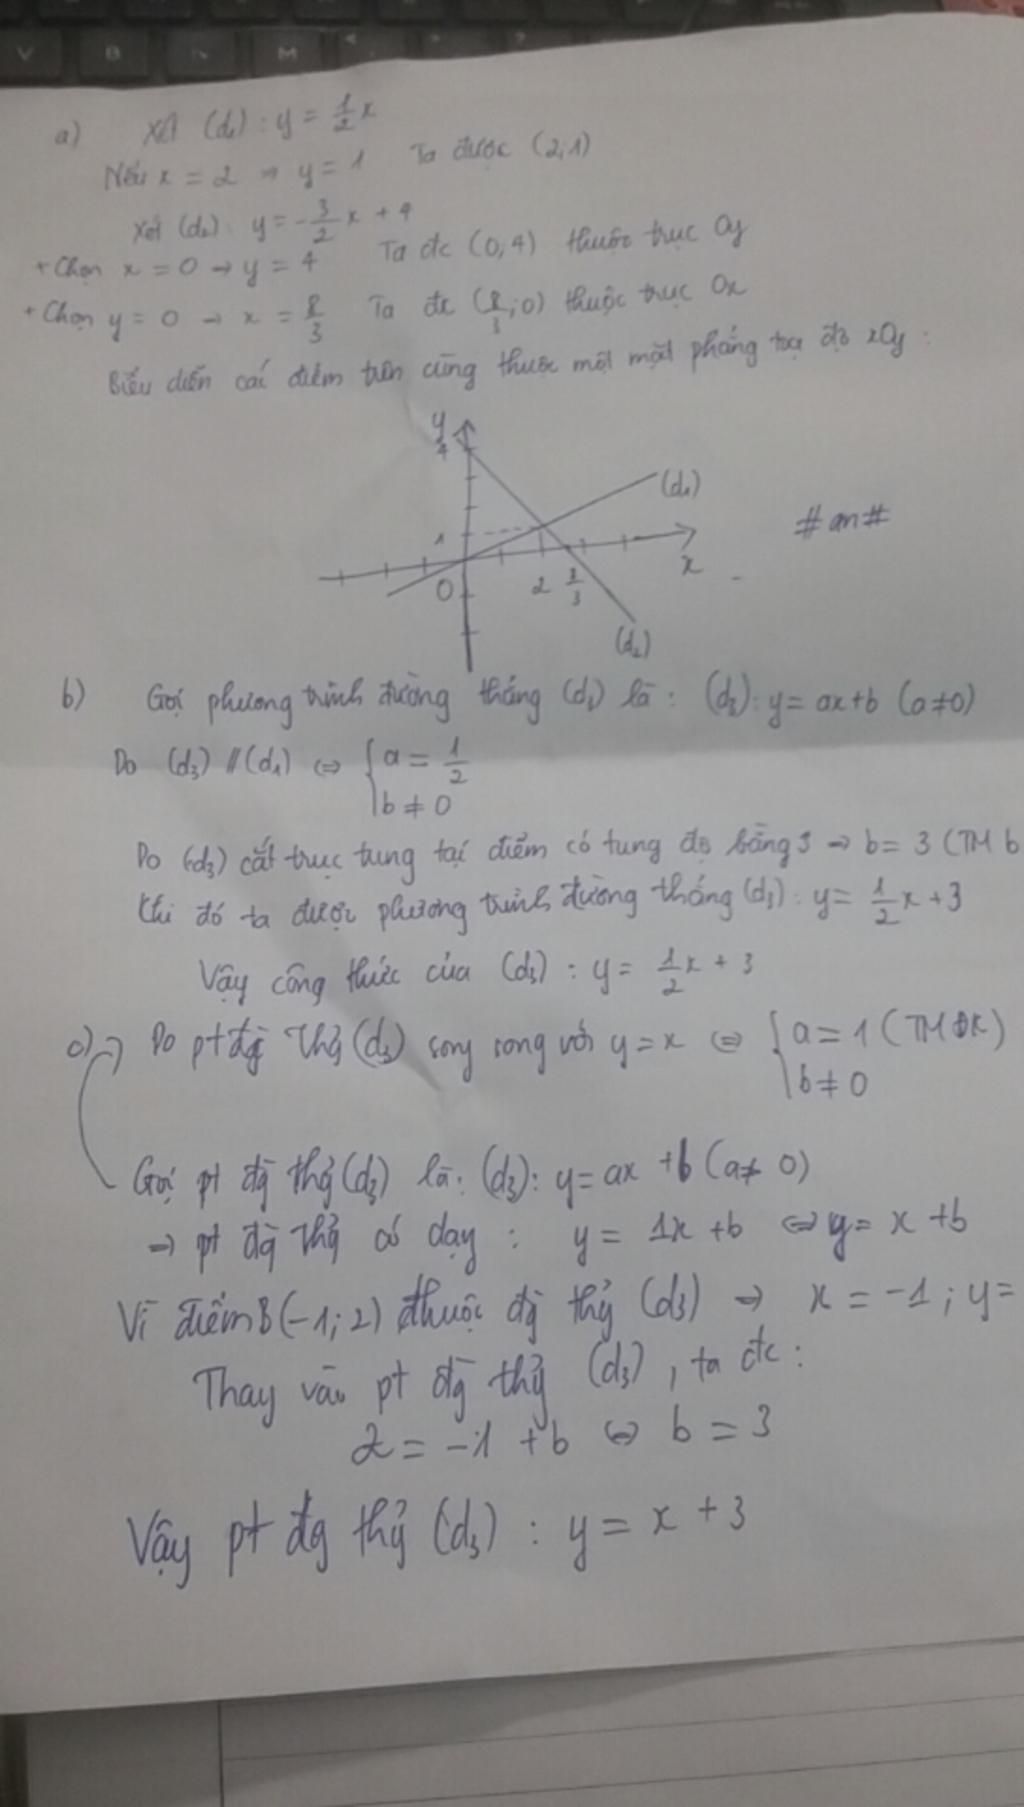 a) Xét (d₁): y = 1/2 x
Nếu x = 2 → y = 1 Ta được (2;1)
Xét (d₂): y = -3/2 x + 4
+ Chọn x = 0 → y = 4 Ta đc (0,4) thuộc trục Oy
+ Chọn y = 0 → x = 8/3 Ta đc (8/3;0) thuộc trục Ox
Biểu diễn các điểm trên cùng thuộc một mặt phẳng toạ độ xOy:
y
4
(d₁)
#an#
1
x
0 2 8/3
(d₂)
b) Gọi phương trình đường thẳng (d₃) là: (d₃): y = ax+b (a≠0)
Do (d₃) // (d₁) ⇔ { a = 1/2
b ≠ 0
Do (d₃) cắt trục tung tại điểm có tung độ bằng 3 → b = 3 (TM b
Khi đó ta được phương trình đường thẳng (d₃): y = 1/2 x + 3
Vậy công thức của (d₃): y = 1/2 x + 3
c) Do pt đg thg (d₃) song song với y = x ⇔ { a = 1 (TMĐK)
b ≠ 0
Gọi pt đg thg (d₃) là: (d₃): y = ax + b (a ≠ 0)
→ pt đg thg có dạng: y = 1x + b ⇔ y = x + b
Vì điểm B(-1;2) thuộc đg thg (d₃) → x = -1; y =
Thay vào pt đg thg (d₃), ta đc:
2 = -1 + b ⇔ b = 3
Vậy pt đg thg (d₃): y = x + 3